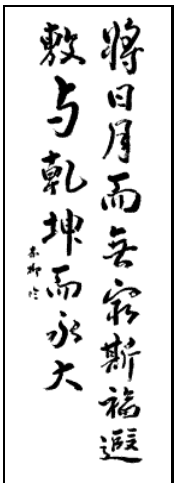 將日月而無窮斯福遐
敷与乾坤而永大